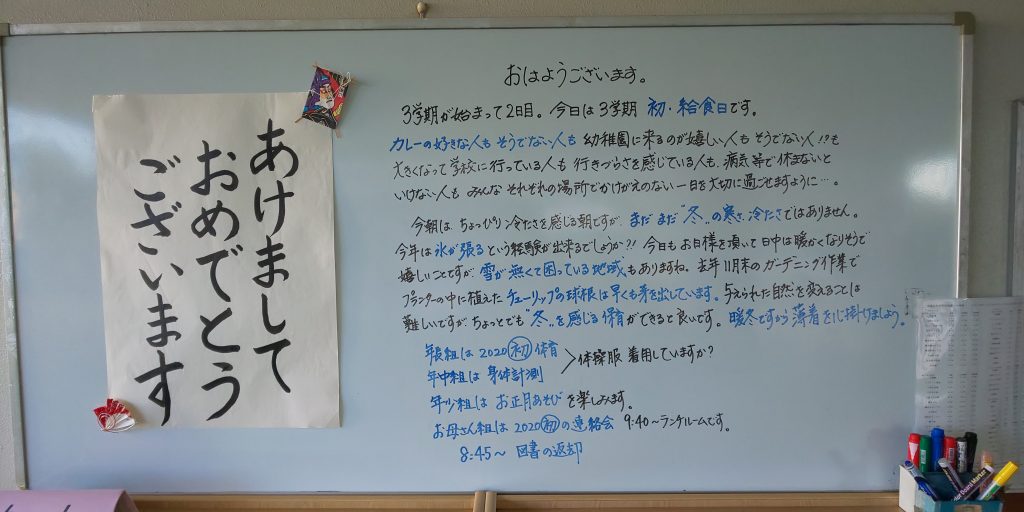 あけまして
おめでとう
ございます
おはようございます。
3学期が始まって2日目。今日は3学期 初・給食日です。
カレーの好きな人も そうでない人も 幼稚園に来るのが嬉しい人も そうでない人!?も
大きくなって学校に行っている人も 行きづらさを感じている人も、病気等で休まないと
いけない人も みんな それぞれの場所でかけがえのない一日を大切に過ごせますように…。
今朝は ちょっぴり冷たさを感じる朝ですが、まだまだ"冬"の寒さ、冷たさではありません。
今年は 氷が張る という経験が出来るでしょうか?! 今日もお日様を頂いて日中は暖かくなりそうで
嬉しいことですが、雪が無くて困っている地域もありますね。去年11月末のガーデニング作業で
プランターの中に植えた チューリップの球根は早くも芽を出しています。与えられた自然を変えることは
難しいですが ちょっとでも"冬"を感じる保育ができると良いです。暖冬ですから薄着を心掛けましょう。
年長組は 2020 初 体育
年中組は 身体計測
体操服 着用していますか?
年少組は お正月あそびを楽しみます。
お母さん組は 2020 初 の連絡会 9:40〜ランチルームです。
8:45〜 図書の返却